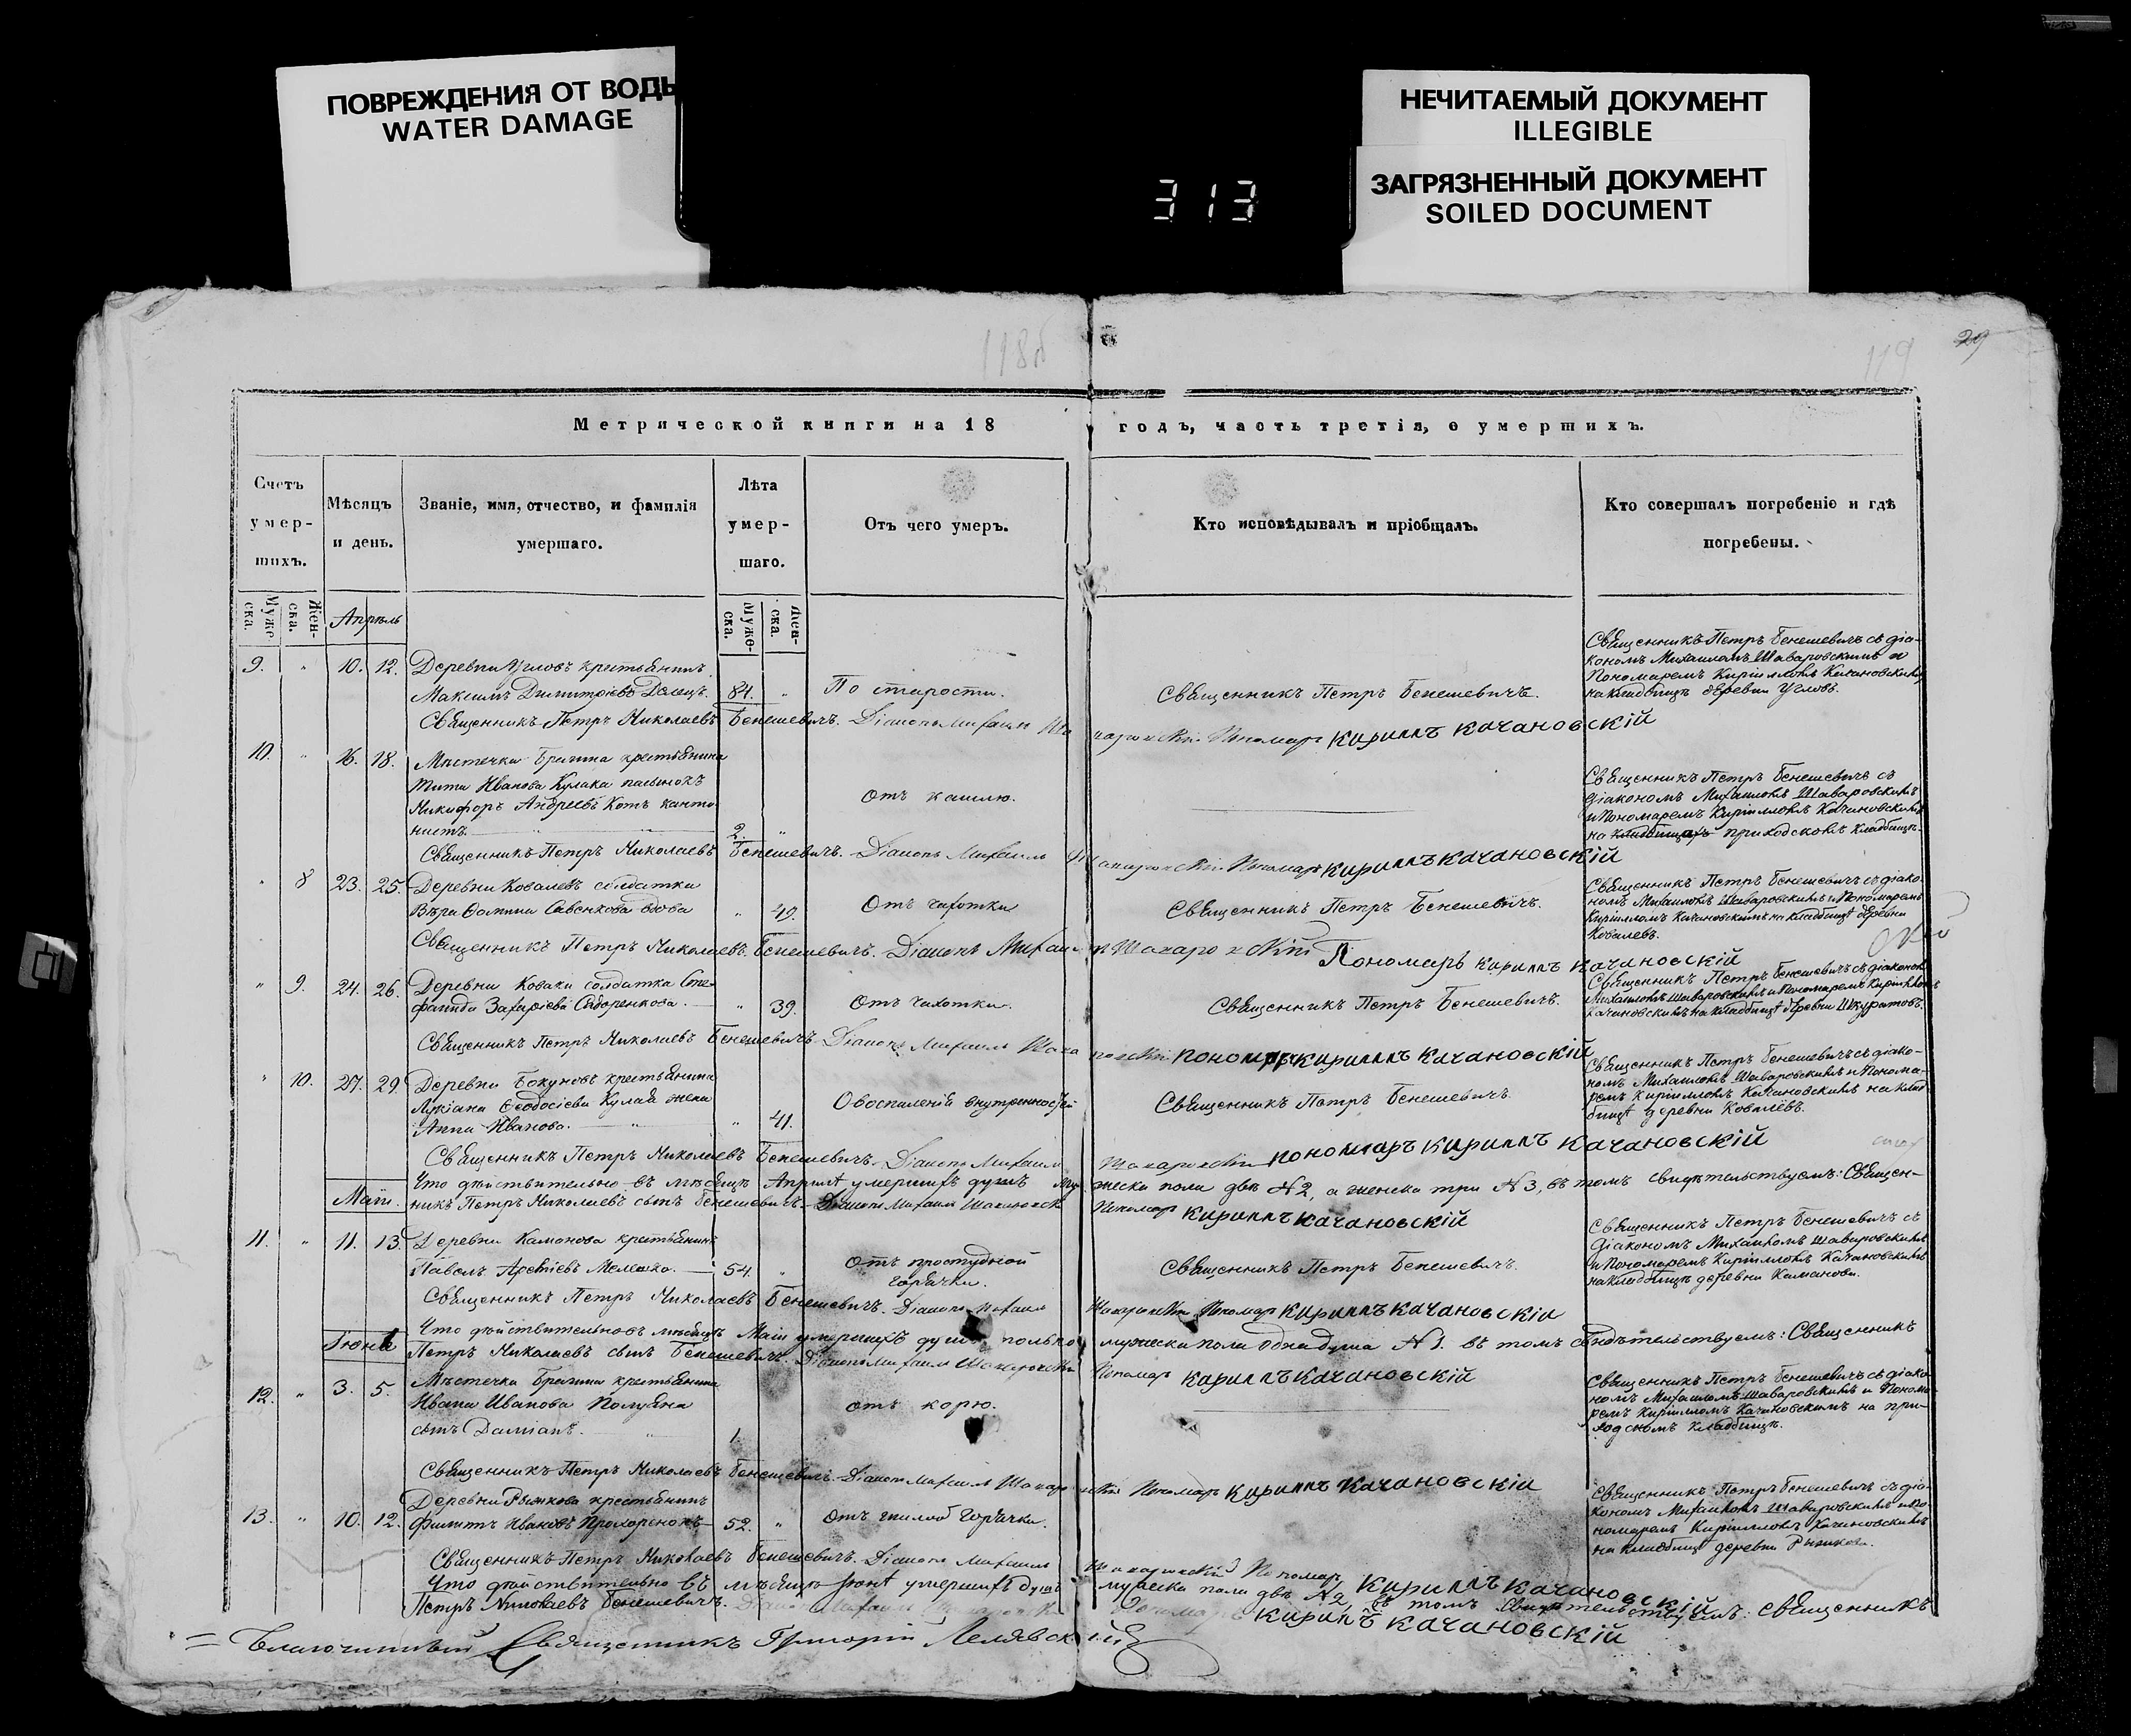 ПОВРЕЖДЕНИЯ ОТ ВОДЫ
WATER DAMAGE
НЕЧИТАЕМЫЙ ДОКУМЕНТ
ILLEGIBLE
ЗАГРЯЗНЕННЫЙ ДОКУМЕНТ
SOILED DOCUMENT
313
118об
119
29
Метрической книги на 18 годъ, часть третія, о умершихъ.
Счетъ умер-шихъ.
Мѣсяцъ и день.
Званіе, имя, отчество, и фамилія умершаго.
Лѣта умер-шаго.
Отъ чего умеръ.
Кто исповѣдывалъ и пріобщалъ.
Кто совершалъ погребеніе и гдѣ погребены.
Муже-ска.
Жен-ска.
Муже-ска.
Жен-ска.
Апрѣль
9. " 10. 12. Деревни Угловъ крестьянинъ
Максимъ Димитріевъ 84. " По старости. Священникъ Петръ Бенешевичъ.
Священникъ Петръ Бенешевичъ съ діа-
кономъ Михаиломъ Шаваровскимъ и
Пономаремъ Кирилломъ Качановскимъ
на кладбищѣ деревни Угловъ.
Священникъ Петръ Николаевъ Бенешевичъ. Діаконъ Михаилъ Пономарь Кириллъ Качановскій
10. " 16. 18. Мѣстечка Брагина крестьянина
Тита Иванова Кулака пасынокъ
Никифоръ Андреевъ Котъ канто-
нистъ 2. " Отъ кашлю.
Священникъ Петръ Бенешевичъ съ
діакономъ Михаиломъ Шаваровскимъ
и Пономаремъ Кирилломъ Качановскимъ
на приходскомъ кладбищѣ.
Священникъ Петръ Николаевъ Бенешевичъ. Діаконъ Михаилъ Пономарь Кириллъ Качановскій
" 8 23. 25. Деревни Ковалевъ солдатка
Вѣра Ѳомина Савенкова вдова " 49. Отъ чахотки Священникъ Петръ Бенешевичъ.
Священникъ Петръ Бенешевичъ съ діако-
номъ Михаиломъ Шаваровскимъ и Пономаремъ
Кирилломъ Качановскимъ на кладбищѣ деревни
Ковалевъ.
Священникъ Петръ Николаевъ Бенешевичъ. Діаконъ Михаилъ Пономарь Кириллъ Качановскій
" 9. 24. 26. Деревни солдатка Сте-
фанида Захаріева Сидоренкова. " 39. Отъ чахотки. Священникъ Петръ Бенешевичъ.
Священникъ Петръ Бенешевичъ съ діакономъ
Михаиломъ Шаваровскимъ и Пономаремъ Кирилломъ
Качановскимъ на кладбищѣ деревни Шкуратовъ.
Священникъ Петръ Николаевъ Бенешевичъ Діаконъ Михаилъ Пономарь Кириллъ Качановскій
" 10. 27. 29. Деревни Бокуновъ крестьянина
Лукіана Ѳеодосіева жена
Анна Иванова. " 41. О воспаленія внутренностей Священникъ Петръ Бенешевичъ
Священникъ Петръ Бенешевичъ съ діако-
номъ Михаиломъ Шаваровскимъ и Понома-
ремъ Кирилломъ Качановскимъ на клад-
бищѣ деревни Ковалевъ.
Священникъ Петръ Николаевъ Бенешевичъ. Діаконъ Михаилъ Пономарь Кириллъ Качановскій
Что дѣйствительно въ мѣсяцѣ Априлѣ умершихъ душъ мужеска пола двѣ №2, а женска три №3, въ томъ свидѣтельствуемъ: Священ-
никъ Петръ Николаевъ сынъ Бенешевичъ. Діаконъ Михаилъ Пономарь Кириллъ Качановскій
Маій.
11. " 11. 13. Деревни Каманова крестьянинъ
Павелъ Мелешко. 54. " Отъ простудной
горячки. Священникъ Петръ Бенешевичъ.
Священникъ Петръ Бенешевичъ съ
діакономъ Михаиломъ Шаваровскимъ
и Пономаремъ Кирилломъ Качановскимъ
на кладбищѣ деревни Каманова.
Священникъ Петръ Николаевъ Бенешевичъ. Діаконъ Михаилъ Пономарь Кириллъ Качановскій
Что дѣйствительно въ мѣсяцѣ Маіи умершихъ душъ только мужеска пола одна душа №1. въ томъ свидѣтельствуемъ: Священникъ
Петръ Николаевъ сынъ Бенешевичъ. Діаконъ Михаилъ Пономарь Кириллъ Качановскій
Іюнь
12. " 3. 5. Мѣстечка Брагина крестьянина
Ивана Иванова
сынъ Даміанъ. 1. отъ корю.
Священникъ Петръ Бенешевичъ съ діако-
номъ Михаиломъ Шаваровскимъ и Понома-
ремъ Кирилломъ Качановскимъ на при-
ходскомъ кладбищѣ.
Священникъ Петръ Николаевъ Бенешевичъ. Діаконъ Михаилъ Пономарь Кириллъ Качановскій
13. " 10. 12. Деревни Рыжкова крестьянинъ
Филиппъ Ивановъ 52. " Отъ гнилой горячки.
Священникъ Петръ Бенешевичъ съ діа-
кономъ Михаиломъ Шаваровскимъ и По-
номаремъ Кирилломъ Качановскимъ
на кладбищѣ деревни Рыжкова.
Священникъ Петръ Николаевъ Бенешевичъ. Діаконъ Михаилъ Пономарь Кириллъ Качановскій
Что дѣйствительно въ мѣсяцѣ Іюнѣ умершихъ душъ мужеска пола двѣ №2, въ томъ свидѣтельствуемъ: Священникъ
Петръ Николаевъ Бенешевичъ. Діаконъ Михаилъ Пономарь Кириллъ Качановскій
Благочинный Священникъ Григорій